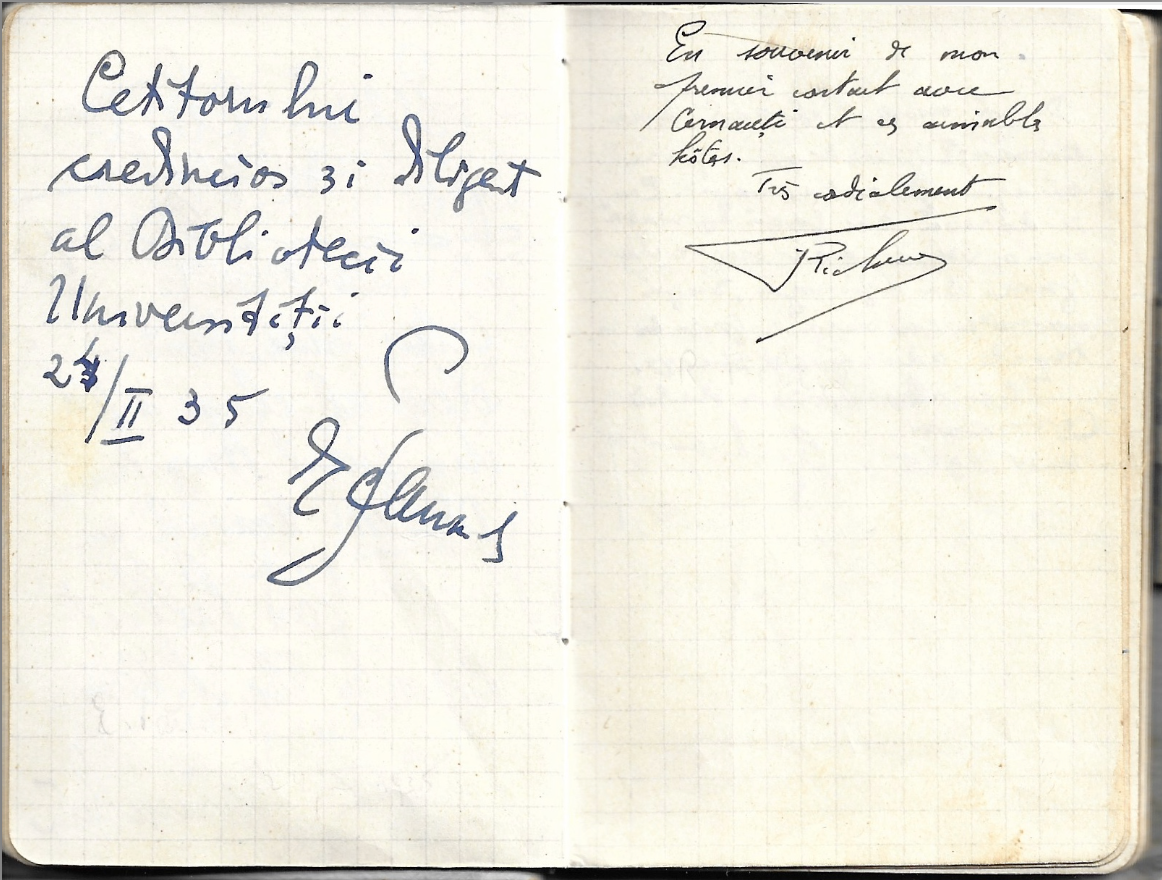 Cetitorului
credincios și diligent
al Bibliotecii
Universității
24/II 35
En souvenir de mon
premier contact avec
Cernăuți et ses aimables
hôtes.
Très cordialement